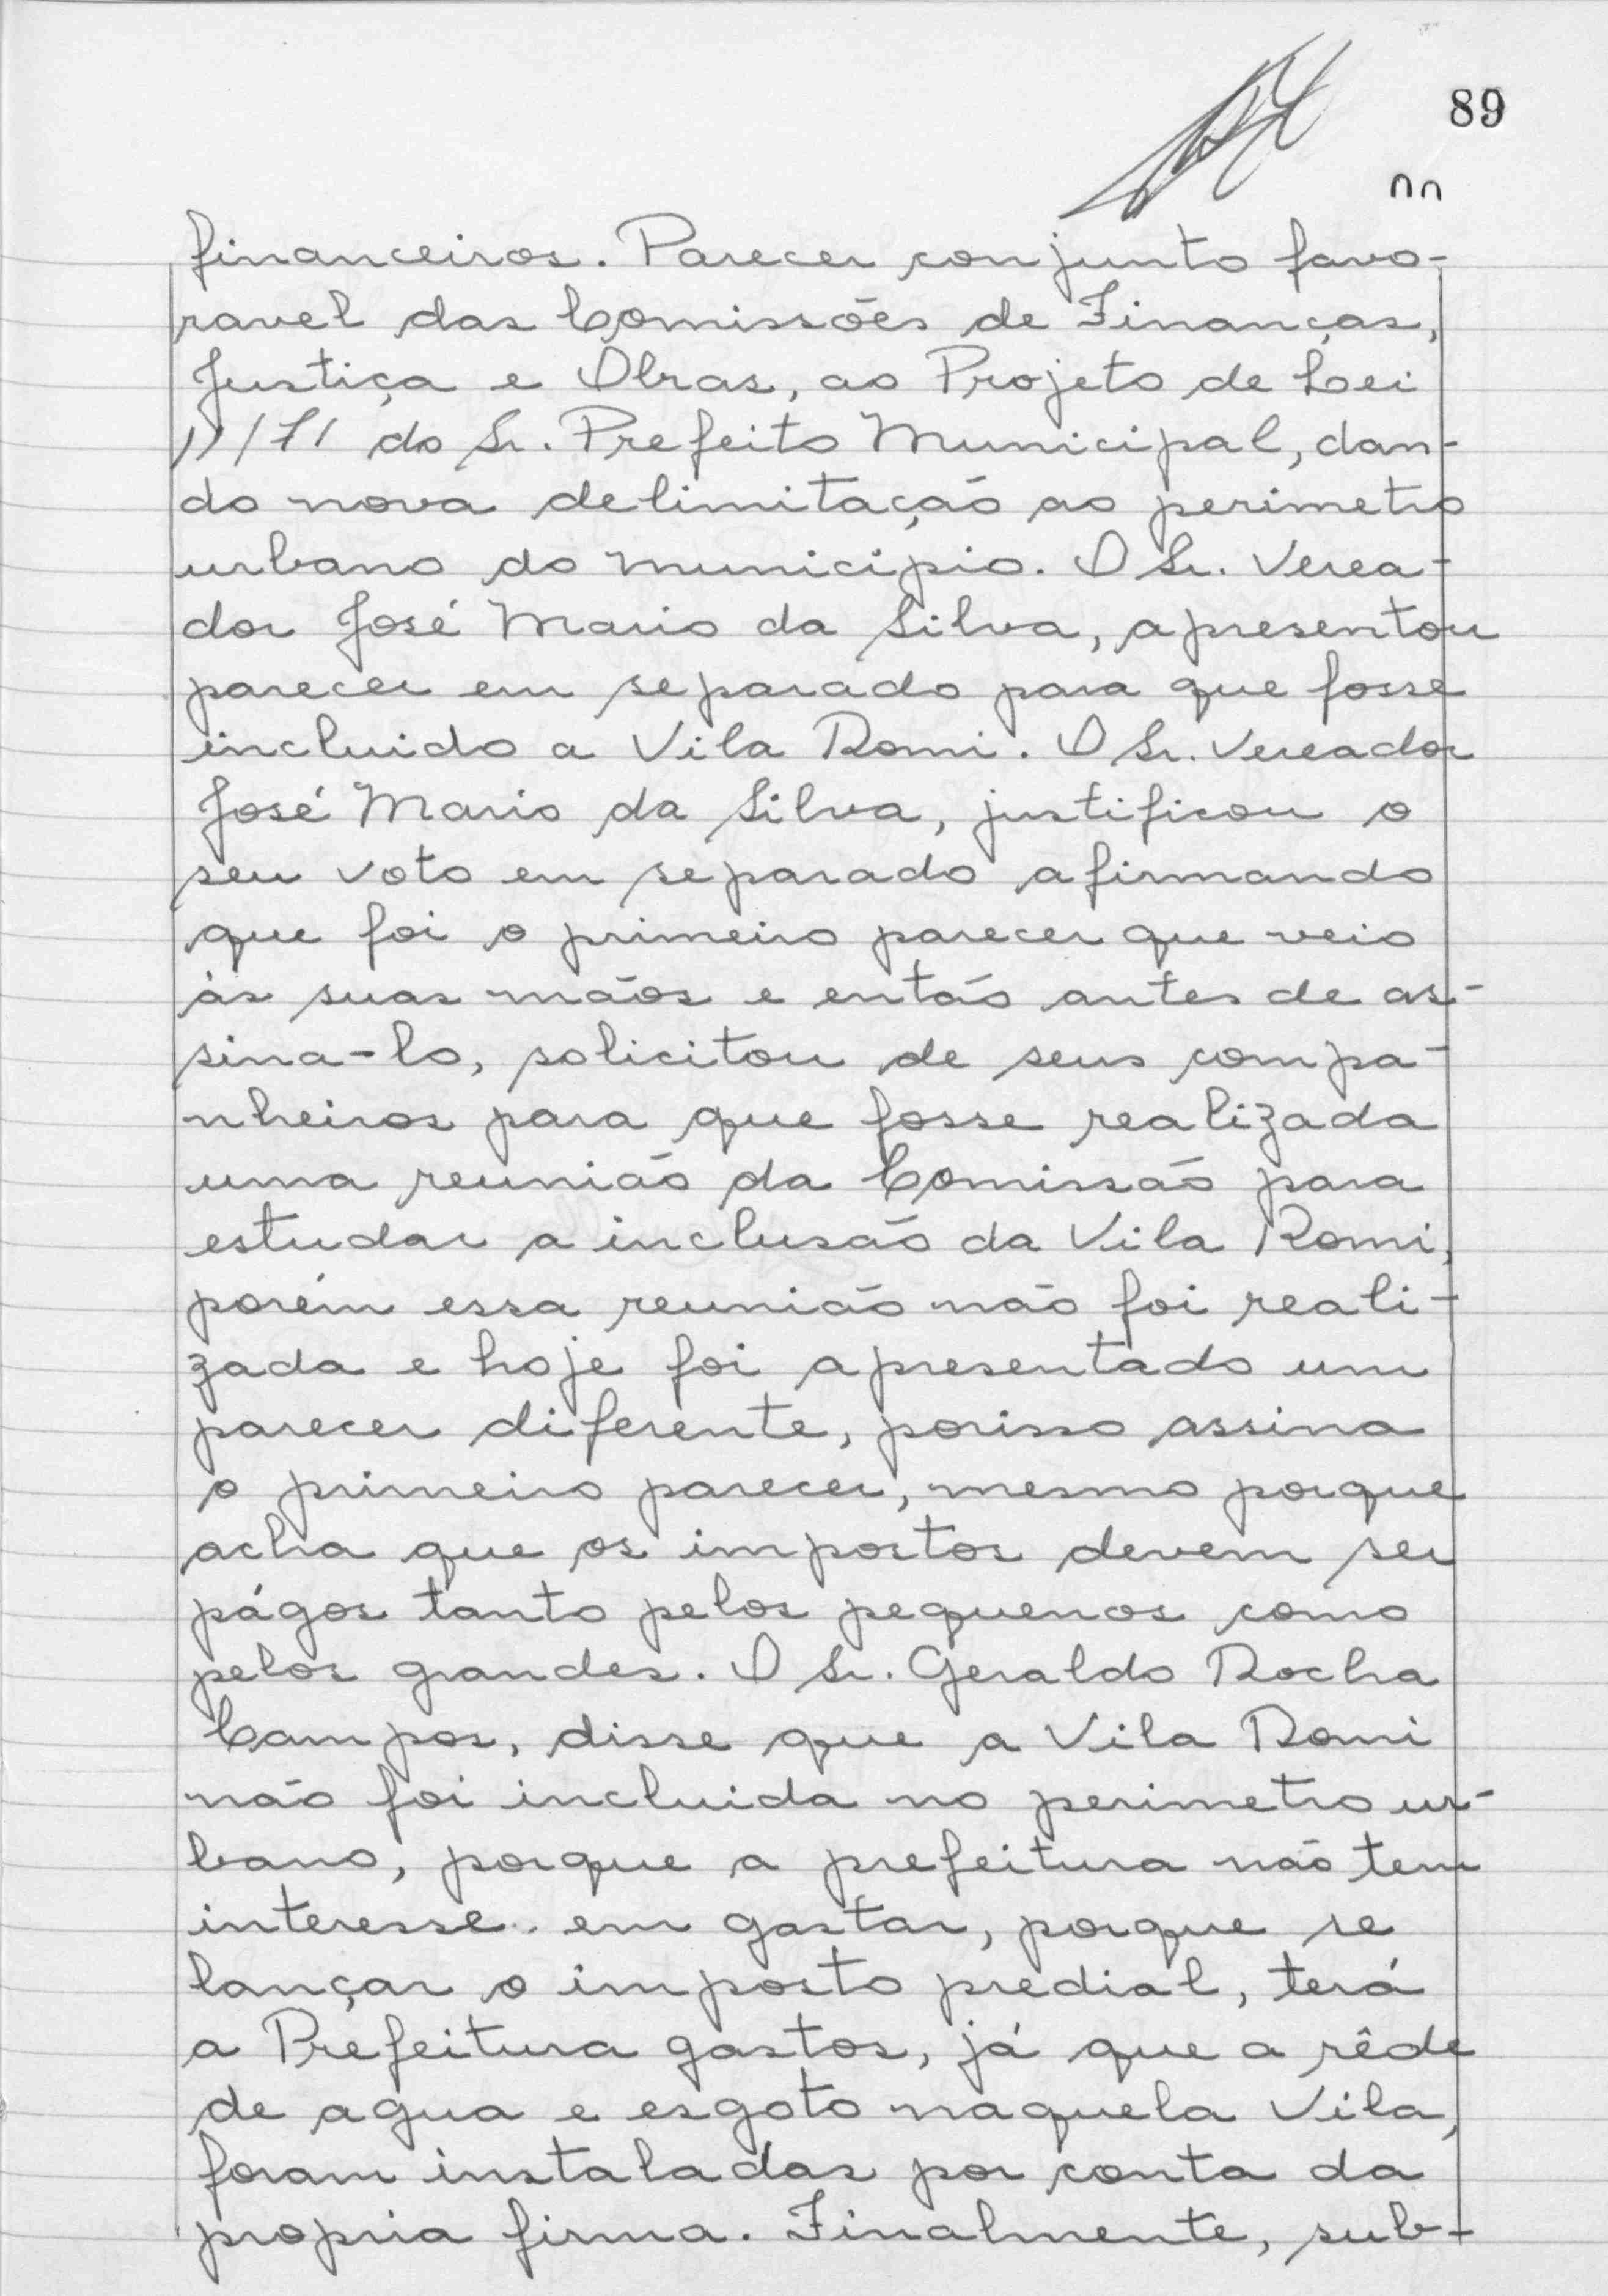 89
financeiros. Parecer conjunto favo-
ravel das Comissões de Finanças,
Justiça e Obras, ao Projeto de Lei
11/71 do Sr. Prefeito Municipal, dan-
do nova delimitação ao perimetro
urbano do municipio. O Sr. Verea-
dor José Mario da Silva, apresentou
parecer em separado para que fosse
incluido a Vila Romi. O Sr. Vereador
José Mario da Silva, justificou o
seu voto em separado afirmando
que foi o primeiro parecer que veio
às suas mãos e então antes de as-
sina-lo, solicitou de seus compa-
nheiros para que fosse realizada
uma reunião da Comissão para
estudar a inclusão da Vila Romi,
porém essa reunião não foi reali-
zada e hoje foi apresentado um
parecer diferente, porisso assina
o primeiro parecer, mesmo porque
acha que os impostos devem ser
págos tanto pelos pequenos como
pelos grandes. O Sr. Geraldo Rocha
Campos, disse que a Vila Romi
não foi incluida no perimetro ur-
bano, porque a prefeitura não tem
interesse em gastar, porque se
lançar o imposto predial, terá
a Prefeitura gastos, já que a rêde
de agua e esgoto naquela Vila,
foram instaladas por conta da
propria firma. Finalmente, sub-